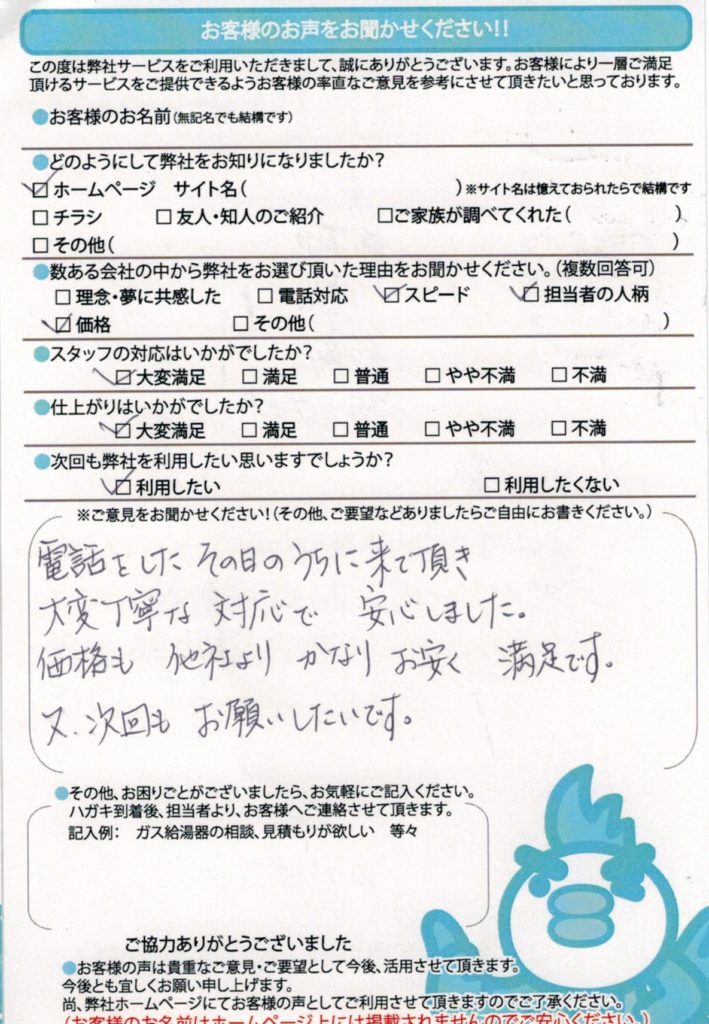 お客様のお声をお聞かせください!!
この度は弊社サービスをご利用いただきまして、誠にありがとうございます。お客様により一層ご満足
頂けるサービスをご提供できるようお客様の率直なご意見を参考にさせて頂きたいと思っております。
●お客様のお名前(無記名でも結構です)
●どのようにして弊社をお知りになりましたか?
☑ホームページ サイト名( )※サイト名は憶えておられたらで結構です
□チラシ □友人・知人のご紹介 □ご家族が調べてくれた( )
□その他( )
●数ある会社の中から弊社をお選び頂いた理由をお聞かせください。(複数回答可)
□理念・夢に共感した □電話対応 ☑スピード ☑担当者の人柄
☑価格 □その他( )
●スタッフの対応はいかがでしたか?
☑大変満足 □満足 □普通 □やや不満 □不満
●仕上がりはいかがでしたか?
☑大変満足 □満足 □普通 □やや不満 □不満
●次回も弊社を利用したい思いますでしょうか?
☑利用したい □利用したくない
※ご意見をお聞かせください!(その他、ご要望などありましたらご自由にお書きください。)
電話をしたその日のうちに来て頂き
大変丁寧な対応で 安心しました。
価格も 他社より かなり お安く 満足です。
又、次回も お願いしたいです。
●その他、お困りごとがございましたら、お気軽にご記入ください。
ハガキ到着後、担当者より、お客様へご連絡させて頂きます。
記入例: ガス給湯器の相談、見積もりが欲しい 等々
ご協力ありがとうございました
●お客様の声は貴重なご意見・ご要望として今後、活用させて頂きます。
今後とも宜しくお願い申し上げます。
尚、弊社ホームページにてお客様の声としてご利用させて頂きますのでご了承ください。
(お客様のお名前はホームページ上には掲載されませんのでご安心ください。)